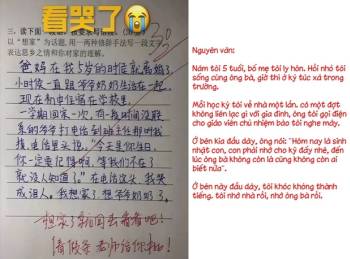 看哭了😭
三、读下面
以“想家”为话题,用一两种修辞手法写一段文字
表达思乡之情和你对家的理解。
爸妈在我5岁的时候就离婚了
小时候一直跟爷爷奶奶生活在一起。
现在初中住宿在学校里。
一学期回家一次,有一段时间没联
系,爷爷打电话到班主任那叫我
接,电话里头说:“今天是你生日,
你一定要记得啊,等我们不在了
就没人知道了。”在电话这头,我哭
成泪人。我想家了,想爷爷奶奶了。
想家了就回去看看吧!
请假条老师给你批!
Nguyên văn:
Năm tôi 5 tuổi, bố mẹ tôi ly hôn. Hồi nhỏ tôi
sống cùng ông bà, giờ thì ở ký túc xá trong
trường.
Mỗi học kỳ tôi về nhà một lần, có một đợt
không liên lạc gì với gia đình, ông tôi gọi điện
cho giáo viên chủ nhiệm bảo tôi nghe máy.
Ở bên kia đầu dây, ông nói: "Hôm nay là sinh
nhật con, con phải nhớ cho kỹ đấy nhé, đến
lúc ông bà không còn là cũng không còn ai
biết nữa".
Ở bên này đầu dây, tôi khóc không thành
tiếng, tôi nhớ nhà rồi, nhớ ông bà rồi.